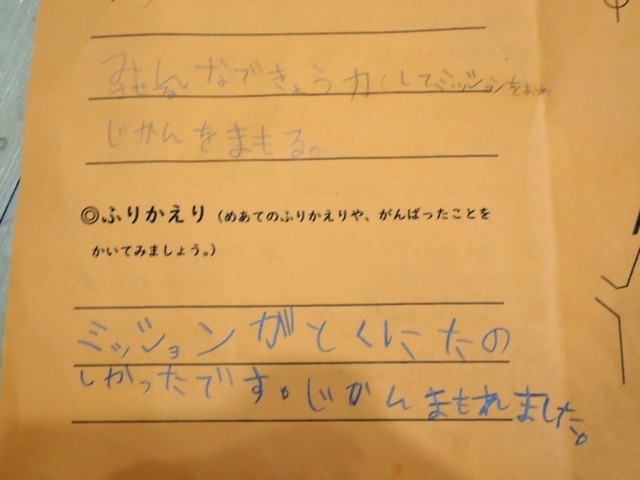 みんなできょう力してミッションをおわ
じかんをまもる。
◎ふりかえり(めあてのふりかえりや、がんばったことを
かいてみましょう。)
ミッションがとくにたの
しかったです。じかんまもれました。